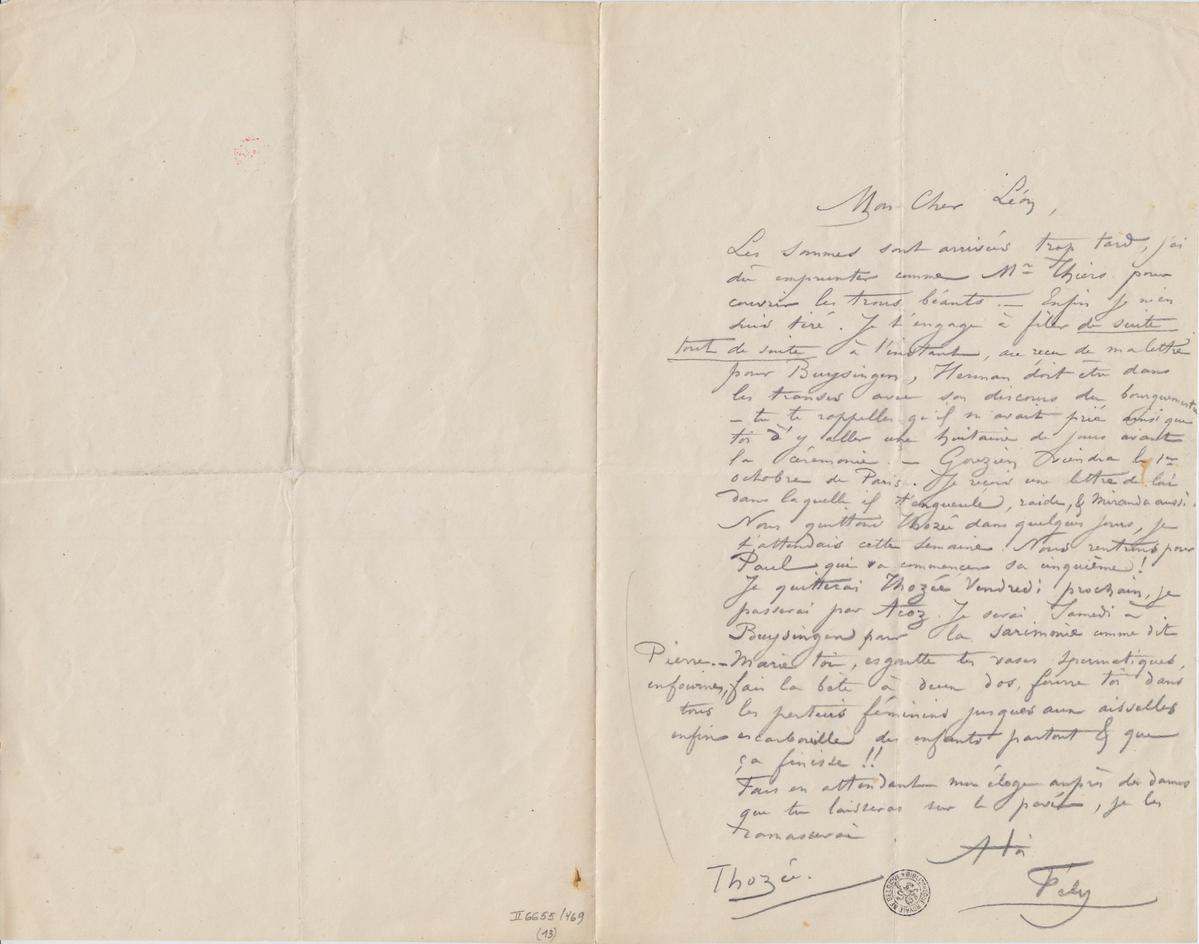 Mon Cher Léon,
Les sommes sont arrivées trop tard, j'ai
dû emprunter comme Mr Thiers pour
couvrir les trous béants. — Enfin je m'en
suis tiré. Je t'engage à filer de suite
tout de suite à l'instant, au reçu de ma lettre
pour Buysingen, Herman doit être dans
les transes avec son discours du bourgmestre
— tu te rappelles qu'il m'avait prié ainsi que
toi d'y aller une huitaine de jours avant
la cérémonie. — Gouzien viendra le 1er
octobre de Paris. Je reçois une lettre de lui
dans laquelle il t'engueule, raide, & Miranda aussi.
Nous quittons Thozée dans quelques jours, je
t'attendais cette semaine. Nous rentrons pour
Paul qui va commencer sa cinquième!
Je quitterai Thozée Vendredi prochain, je
passerai par Acoz. Je serai Samedi à
Buysingen pour la sarimonie comme dit
Pierre. — Marie toi, esgoutte tes vases spermatiques,
enfournes, fais la bête à deux dos, fourre toi dans
tous les pertuis féminins jusques aux aisselles
enfin escarbouille des enfants partout & que
ça finisse!!
Fais en attendant mon éloge auprès des dames
que tu laisseras sur le pavé, je les
ramasserai
A toi
Thozée.
Fély
BIBLIOTHEQUE ROYALE DE BELGIQUE
II 6655/469
(13)